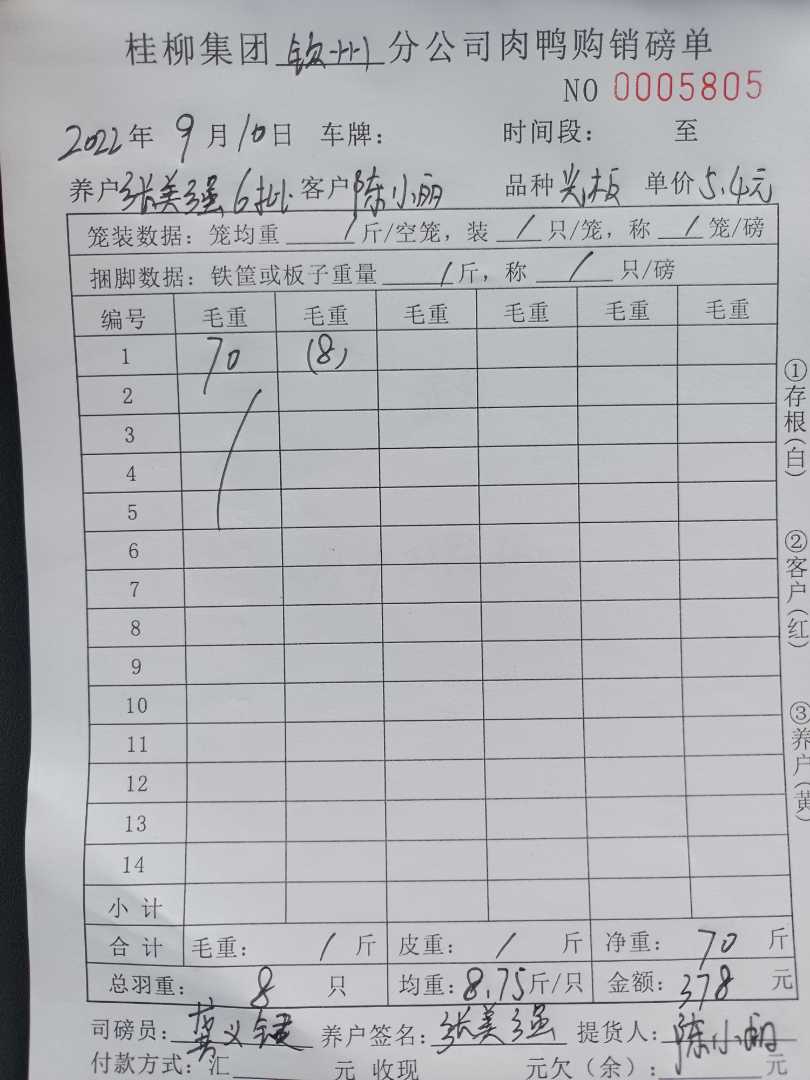 桂柳集团钦州分公司肉鸭购销磅单
NO 0005805
2022年9月10日 车牌： 时间段： 至
养户张美强6批 客户陈小丽 品种光板 单价5.4元
笼装数据：笼均重 / 斤/空笼，装 / 只/笼，称 / 笼/磅
捆脚数据：铁筐或板子重量 / 斤，称 / 只/磅
编号 毛重 毛重 毛重 毛重 毛重 毛重
1 70 (8)
2
3
4
5
6
7
8
9
10
11
12
13
14
小计
合计 毛重： / 斤 皮重： / 斤 净重： 70 斤
总羽重： 8 只 均重：8.75斤/只 金额：378 元
司磅员： 养户签名：张美强 提货人：陈小丽
付款方式：汇 元 收现 元欠（余）： 元
①存根(白)
②客户(红)
③养户(黄)